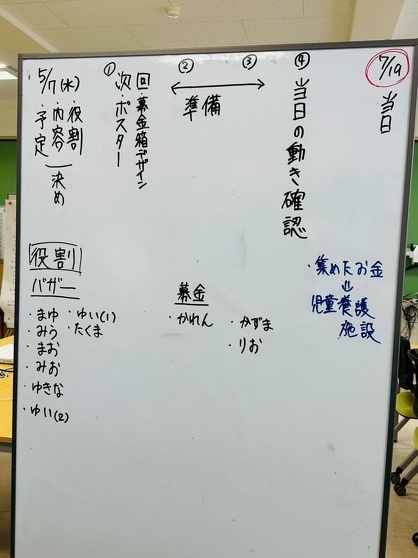 5/7(水)
・役割
・内容
・予定
決め
①
次回
・募金箱デザイン
・ポスター
②
③
準備
④
当日の動き確認
7/19
当日
役割
バザー
・まゆ ・ゆい(1)
・みう ・たくま
・まお
・みお
・ゆきな
・ゆい(2)
募金
・かれん ・かずま
・りお
・集めたお金
⇓
児童養護
施設